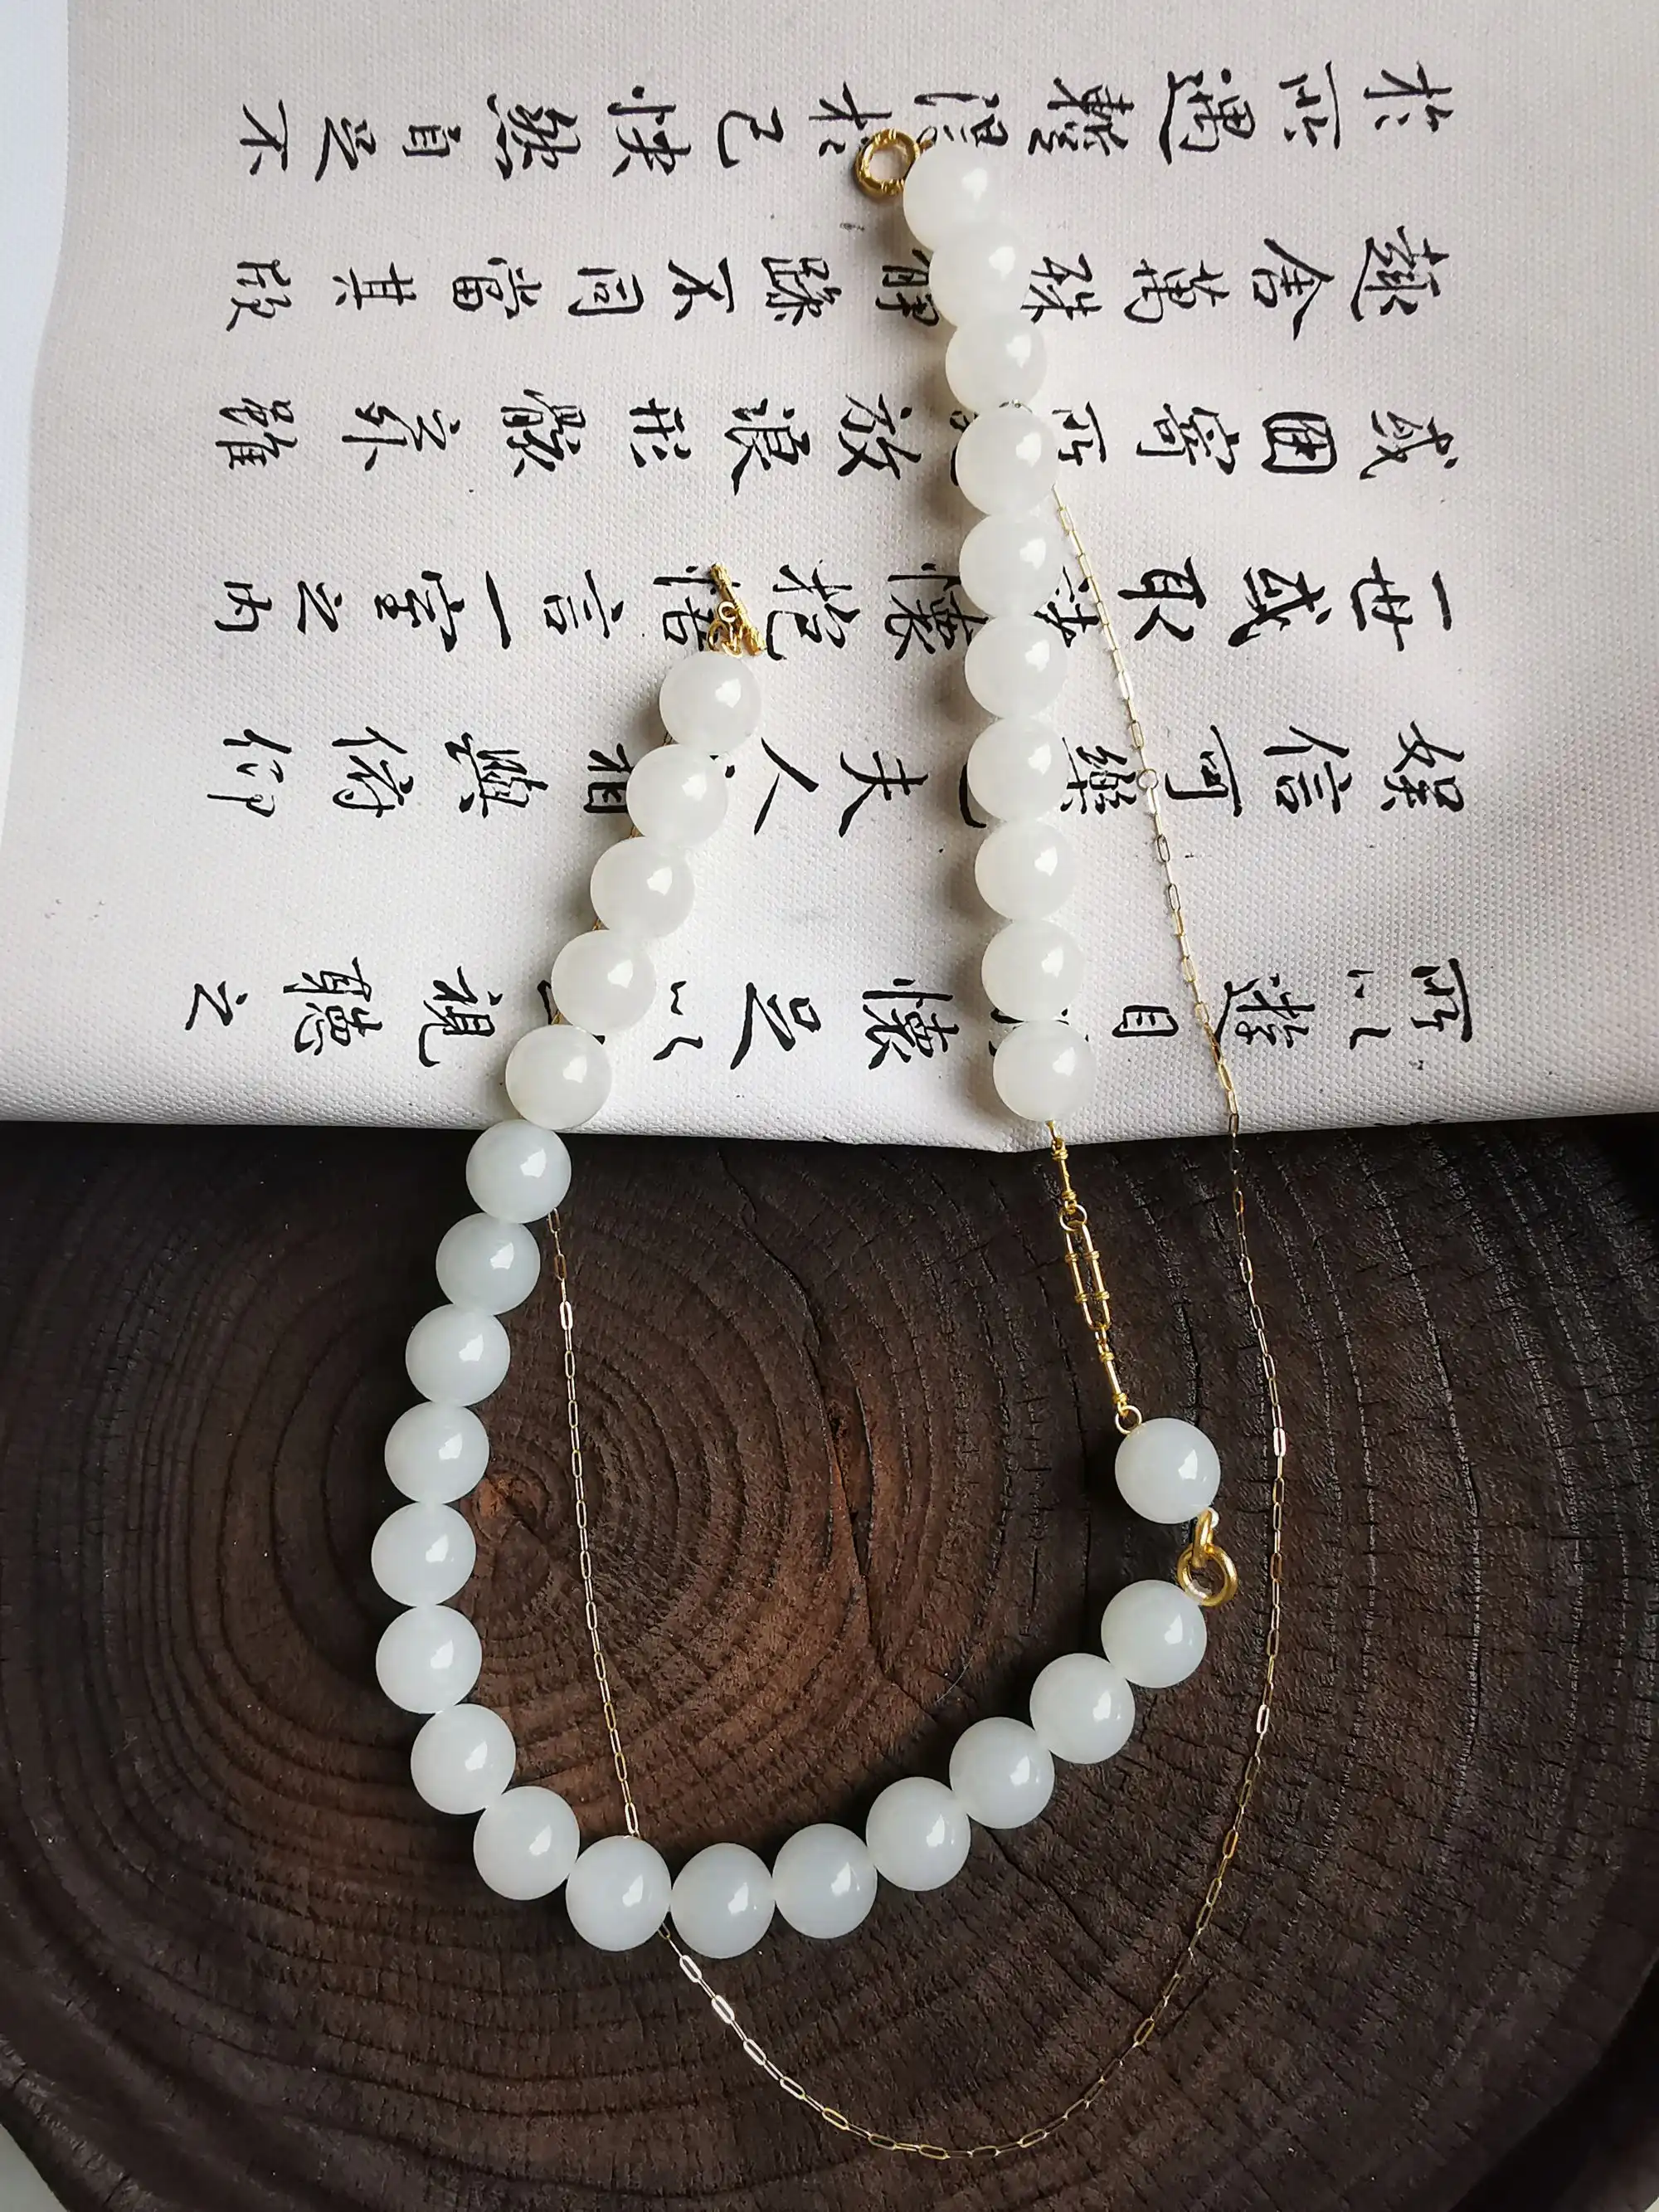 所以遊目懷足以視聽之
娛信可樂也夫人相與俯仰
一世或取諸懷抱悟言一室之內
或因寄所放浪形骸之外雖
趣舍萬殊靜躁不同當其欣
於所遇蹔得於己快然自足不